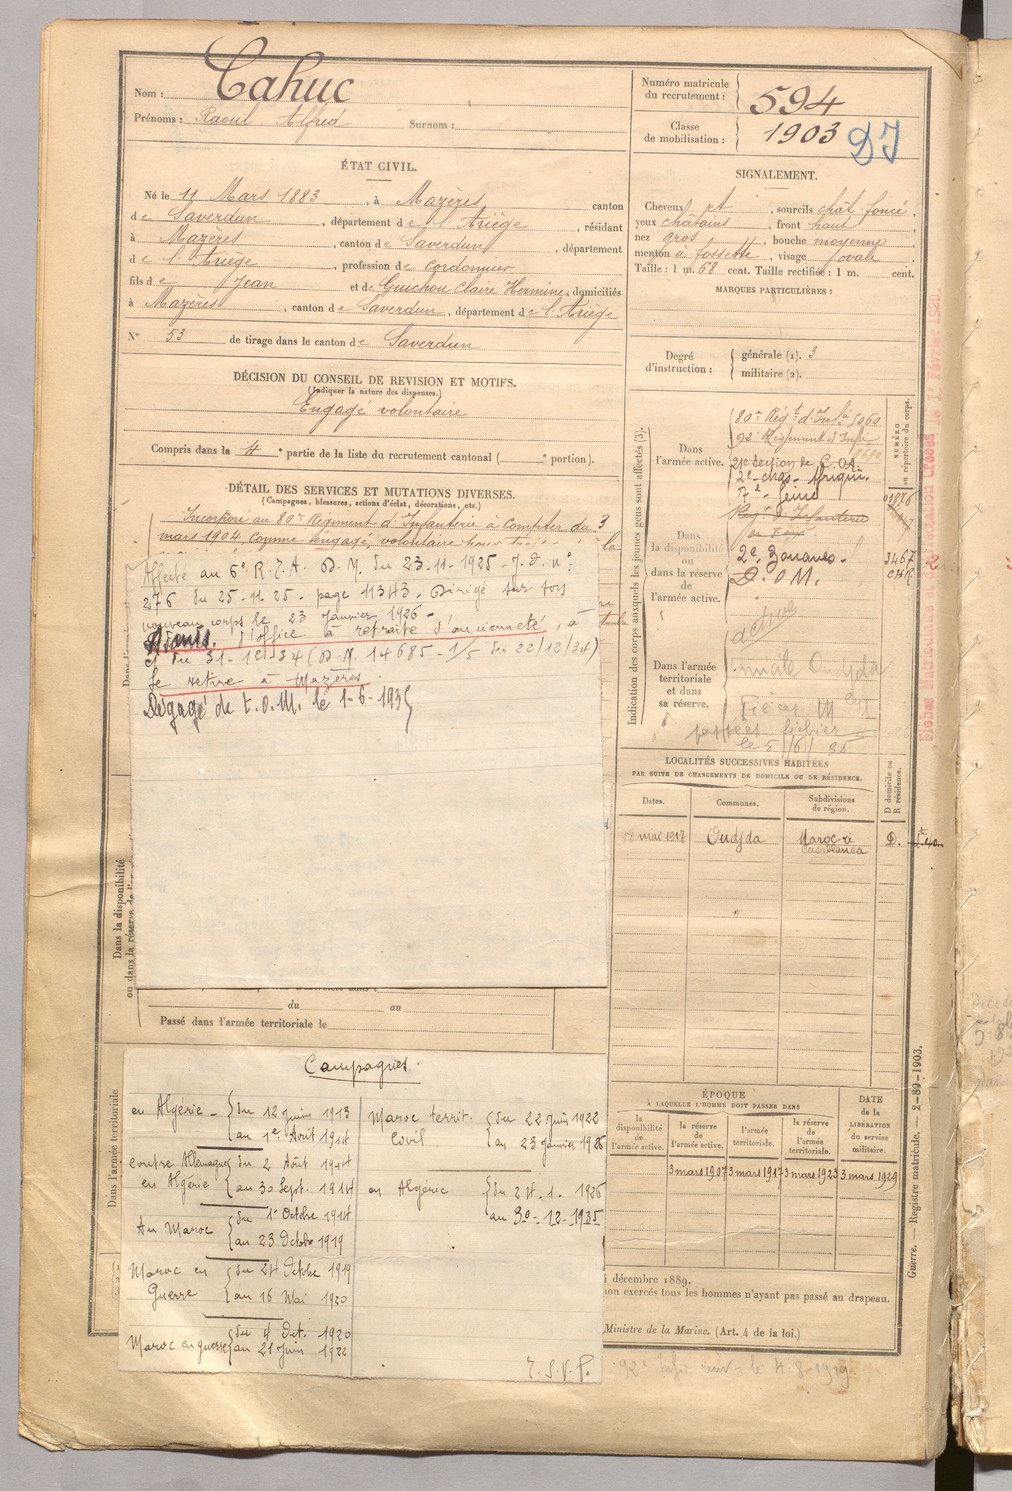 Nom : Cahuc
Prénoms : Raoul Alfred Surnom :
Numéro matricule
du recrutement : 594
Classe
de mobilisation : 1903
DI
ÉTAT CIVIL.
Né le 11 Mars 1883, à Mazères, canton
de Saverdun, département de l'Ariège, résidant
à Mazères, canton de Saverdun, département
de l'Ariège, profession de cordonnier
fils de Jean et de Guichou Claire Hermine, domiciliés
à Mazères, canton de Saverdun, département de l'Ariège
N° 53 de tirage dans le canton de Saverdun
SIGNALEMENT.
Cheveux et, sourcils chât. foncé,
yeux châtains, front haut
nez gros, bouche moyenne
menton à fossette, visage ovale
Taille : 1 m. 68 cent. Taille rectifiée : 1 m. cent.
MARQUES PARTICULIÈRES :
Degré
d'instruction :
générale (1). 3
militaire (2).
DÉCISION DU CONSEIL DE REVISION ET MOTIFS.
(Indiquer la nature des dispenses.)
Engagé volontaire
Compris dans la 4e partie de la liste du recrutement cantonal ( e portion).
DÉTAIL DES SERVICES ET MUTATIONS DIVERSES.
(Campagnes, blessures, actions d'éclat, décorations, etc.)
Incorporé au 80e Régiment d'Infanterie à compter du 3
mars 1904, comme engagé volontaire
Affecté au 6e R.T.A. D.M. du 23.11.1925 - J.O. n°
276 du 25.11.25 - page 11343. Dirigé sur son
nouveau corps le 23 Janvier 1926 -
Admis d'office à retraite d'ancienneté, à
et du 31-12-34 (D.M. 14685-1/5 du 22/12/34)
Se retire à Mazères.
Dégagé de t.O.M. le 1-6-1935
Indication des corps auxquels les jeunes gens sont affectés (3).
NUMÉRO
au répertoire du corps.
Dans
l'armée active.
80e Régt d'Infie 5060
92e Régiment d'Infie
8690
21e Section de C.O.A.
2e chas. Afrique.
7e Génie
Regt d'Infanterie
Dans
la disponibilité
ou
dans la réserve de
l'armée active.
2e Zouaves. 3467
D.O.M.
active
Dans l'armée
territoriale
et dans
sa réserve.
Oudjda
Fiches Matricule
LOCALITÉS SUCCESSIVES HABITÉES
PAR SUITE DE CHANGEMENTS DE DOMICILE OU DE RÉSIDENCE.
Dates. Communes. Subdivisions
de région. D domicile ou
R résidence.
18 mai 1917 Oudjda Maroc à
Casablanca D.
Dans la disponibilité
ou dans la réserve de
du au
Passé dans l'armée territoriale le
Dans l'armée territoriale
Campagnes.
en Algérie - du 12 Juin 1913
au 1er Août 1914
contre Allemagne du 2 Août 1914
en Algérie au 30 Sept. 1914
Au Maroc du 1er Octobre 1914
au 23 Octobre 1919
Maroc en du 24 Octobre 1919
Guerre au 16 Mai 1920
Maroc en guerre du 4 Oct. 1920
au 21 Juin 1922
Maroc territ. du 22 Juin 1922
Civil au 23 Janvier 1926
en Algérie du 24.1.1926
au 30-12-1935
T.S.V.P.
ÉPOQUE
À LAQUELLE L'HOMME DOIT PASSER DANS
la
disponibilité
de
l'armée active.
la réserve
de
l'armée active.
l'armée
territoriale.
la réserve
de
l'armée
territoriale.
DATE
de la
LIBÉRATION
du service
militaire.
3 mars 1907 3 mars 1917 3 mars 1923 3 mars 1929
décembre 1889.
non exercés tous les hommes n'ayant pas passé au drapeau.
Ministre de la Marine. (Art. 4 de la loi.)
92e
le 4-8-1929
Guerre. — Registre matricule. — 2-89-1903.
le 1er Février 1920